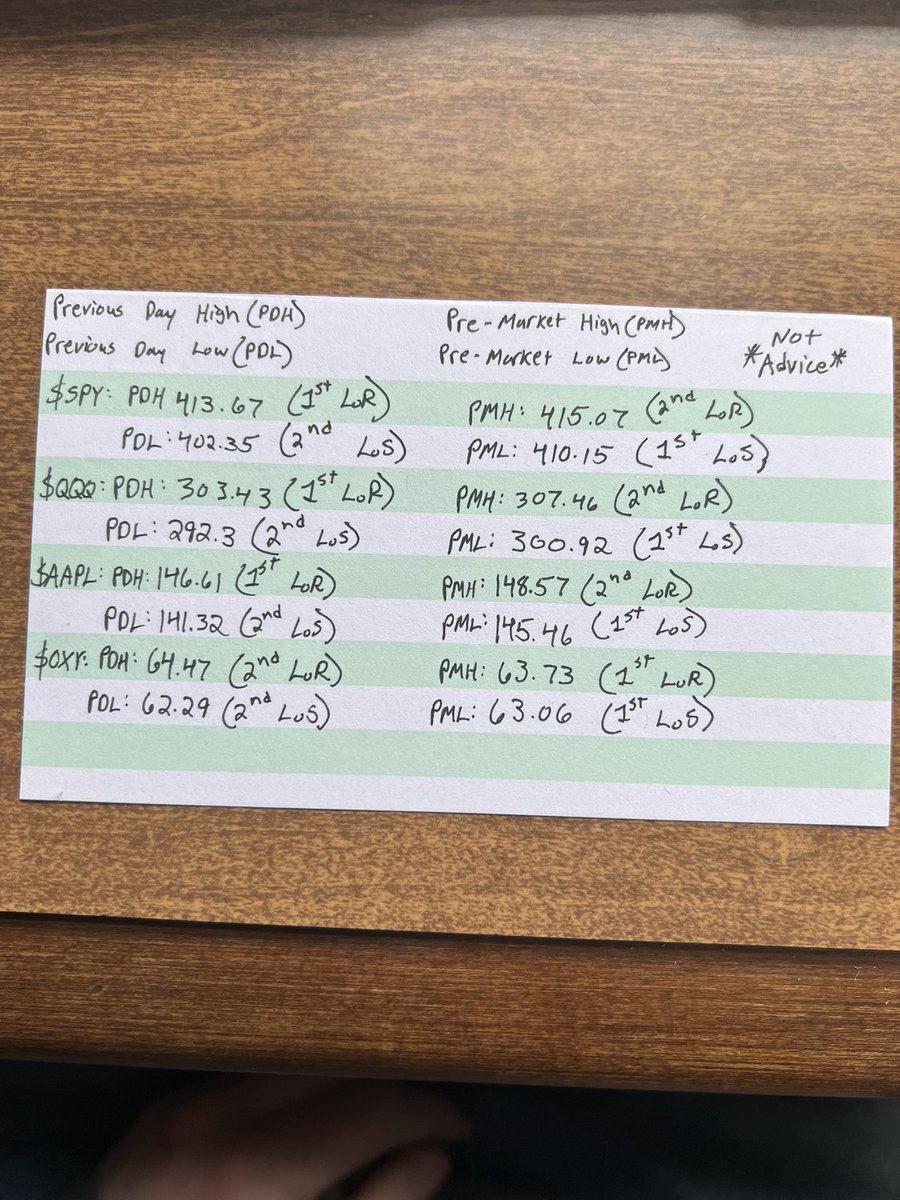 Previous Day High (PDH) Pre-Market High (PMH)
Previous Day Low (PDL) Pre-Market Low (PML) Not *Advice*
$SPY: PDH 413.67 (1st LoR) PMH: 415.07 (2nd LoR)
PDL: 402.35 (2nd LoS) PML: 410.15 (1st LoS)
$QQQ: PDH: 303.43 (1st LoR) PMH: 307.46 (2nd LoR)
PDL: 292.3 (2nd LoS) PML: 300.92 (1st LoS)
$AAPL: PDH: 146.61 (1st LoR) PMH: 148.57 (2nd LoR)
PDL: 141.32 (2nd LoS) PML: 145.46 (1st LoS)
$OXY: PDH: 64.47 (2nd LoR) PMH: 63.73 (1st LoR)
PDL: 62.29 (2nd LoS) PML: 63.06 (1st LoS)